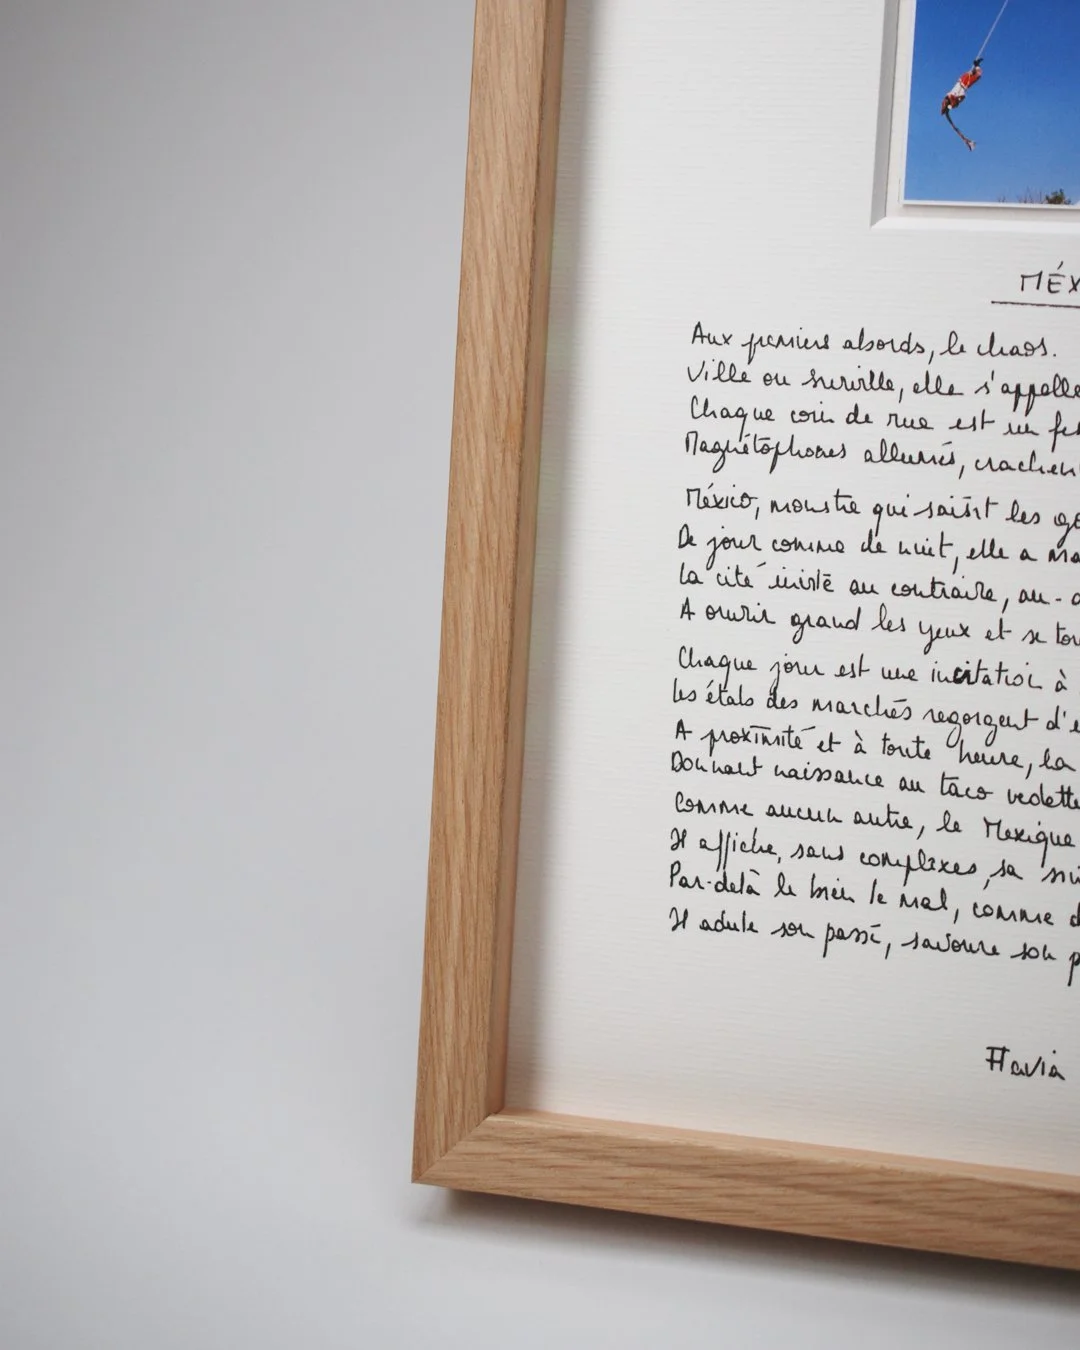 MÉX
Aux premiers abords, le chaos.
Ville ou surville, elle s'appelle
Chaque coin de rue est un fes
Magnétophones allumés, crachen
México, monstre qui saisit les
De jour comme de nuit, elle a ma
La cité invite au contraire, au-d
A ouvrir grand les yeux et se
Chaque jour est une incitation à
Les étals des marchés regorgent d'
A proximité et à toute heure, la
Donnant naissance au taco vedette
Comme aucun autre, le Mexique
Il affiche, sans complexes, sa
Par-delà le bien le mal, comme d
Il adule son passé, savoure son p
Flavia